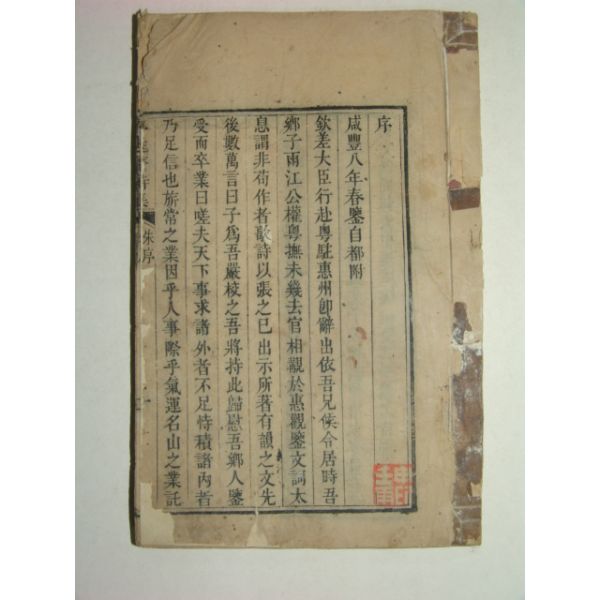 序
咸豐八年春鑒自都附
欽差大臣行赴粵駐惠州卽辭出依吾兄候令居時吾
鄉子雨江公權粵撫未幾去官相觀於惠觀鑒文詞太
息謂非苟作者歌詩以張之已出示所著有韻之文先
後數萬言曰子爲吾嚴校之吾將持此歸慰吾鄉人鑒
受而卒業曰嗟夫天下事求諸外者不足恃積諸內者
乃足信也旂常之業因乎人事際乎氣運名山之業託
朱序